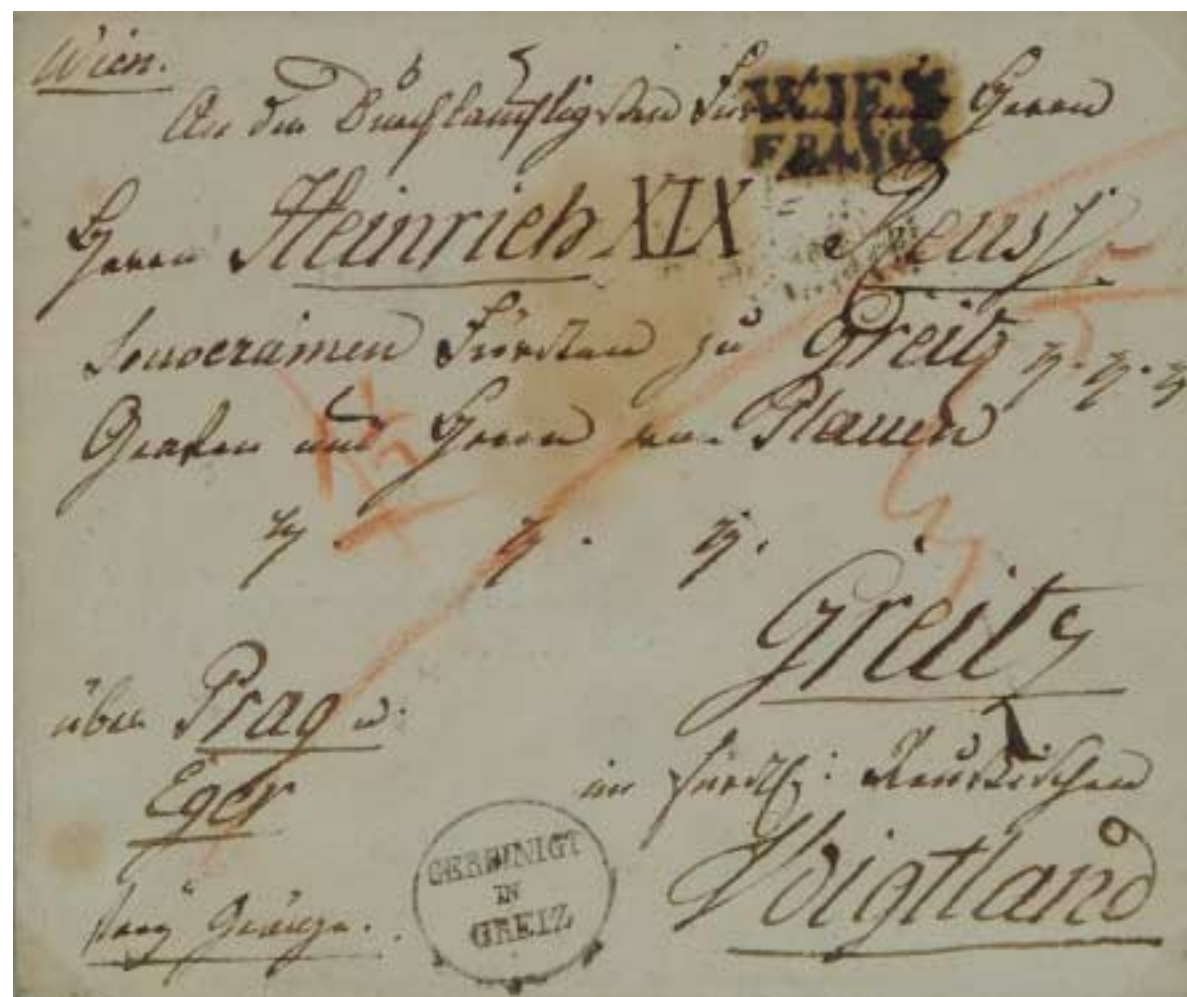 Wien.
An den Durchlauchtigsten Fürsten und Herrn
WIEN
FRANCO
Herrn Heinrich XIX Reuss
Souverainen Fürsten zu Greitz
Grafen und Herrn von Plauen
Greitz
über Prag u.
Eger
im Fürstl: Reussischen
Voigtland
GEREINIGT
IN
GREIZ